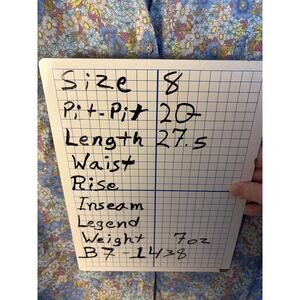 Size 8
Pit-Pit 20
Length 27.5
Waist
Rise
Inseam
Legend
Weight 7oz
B7-1438